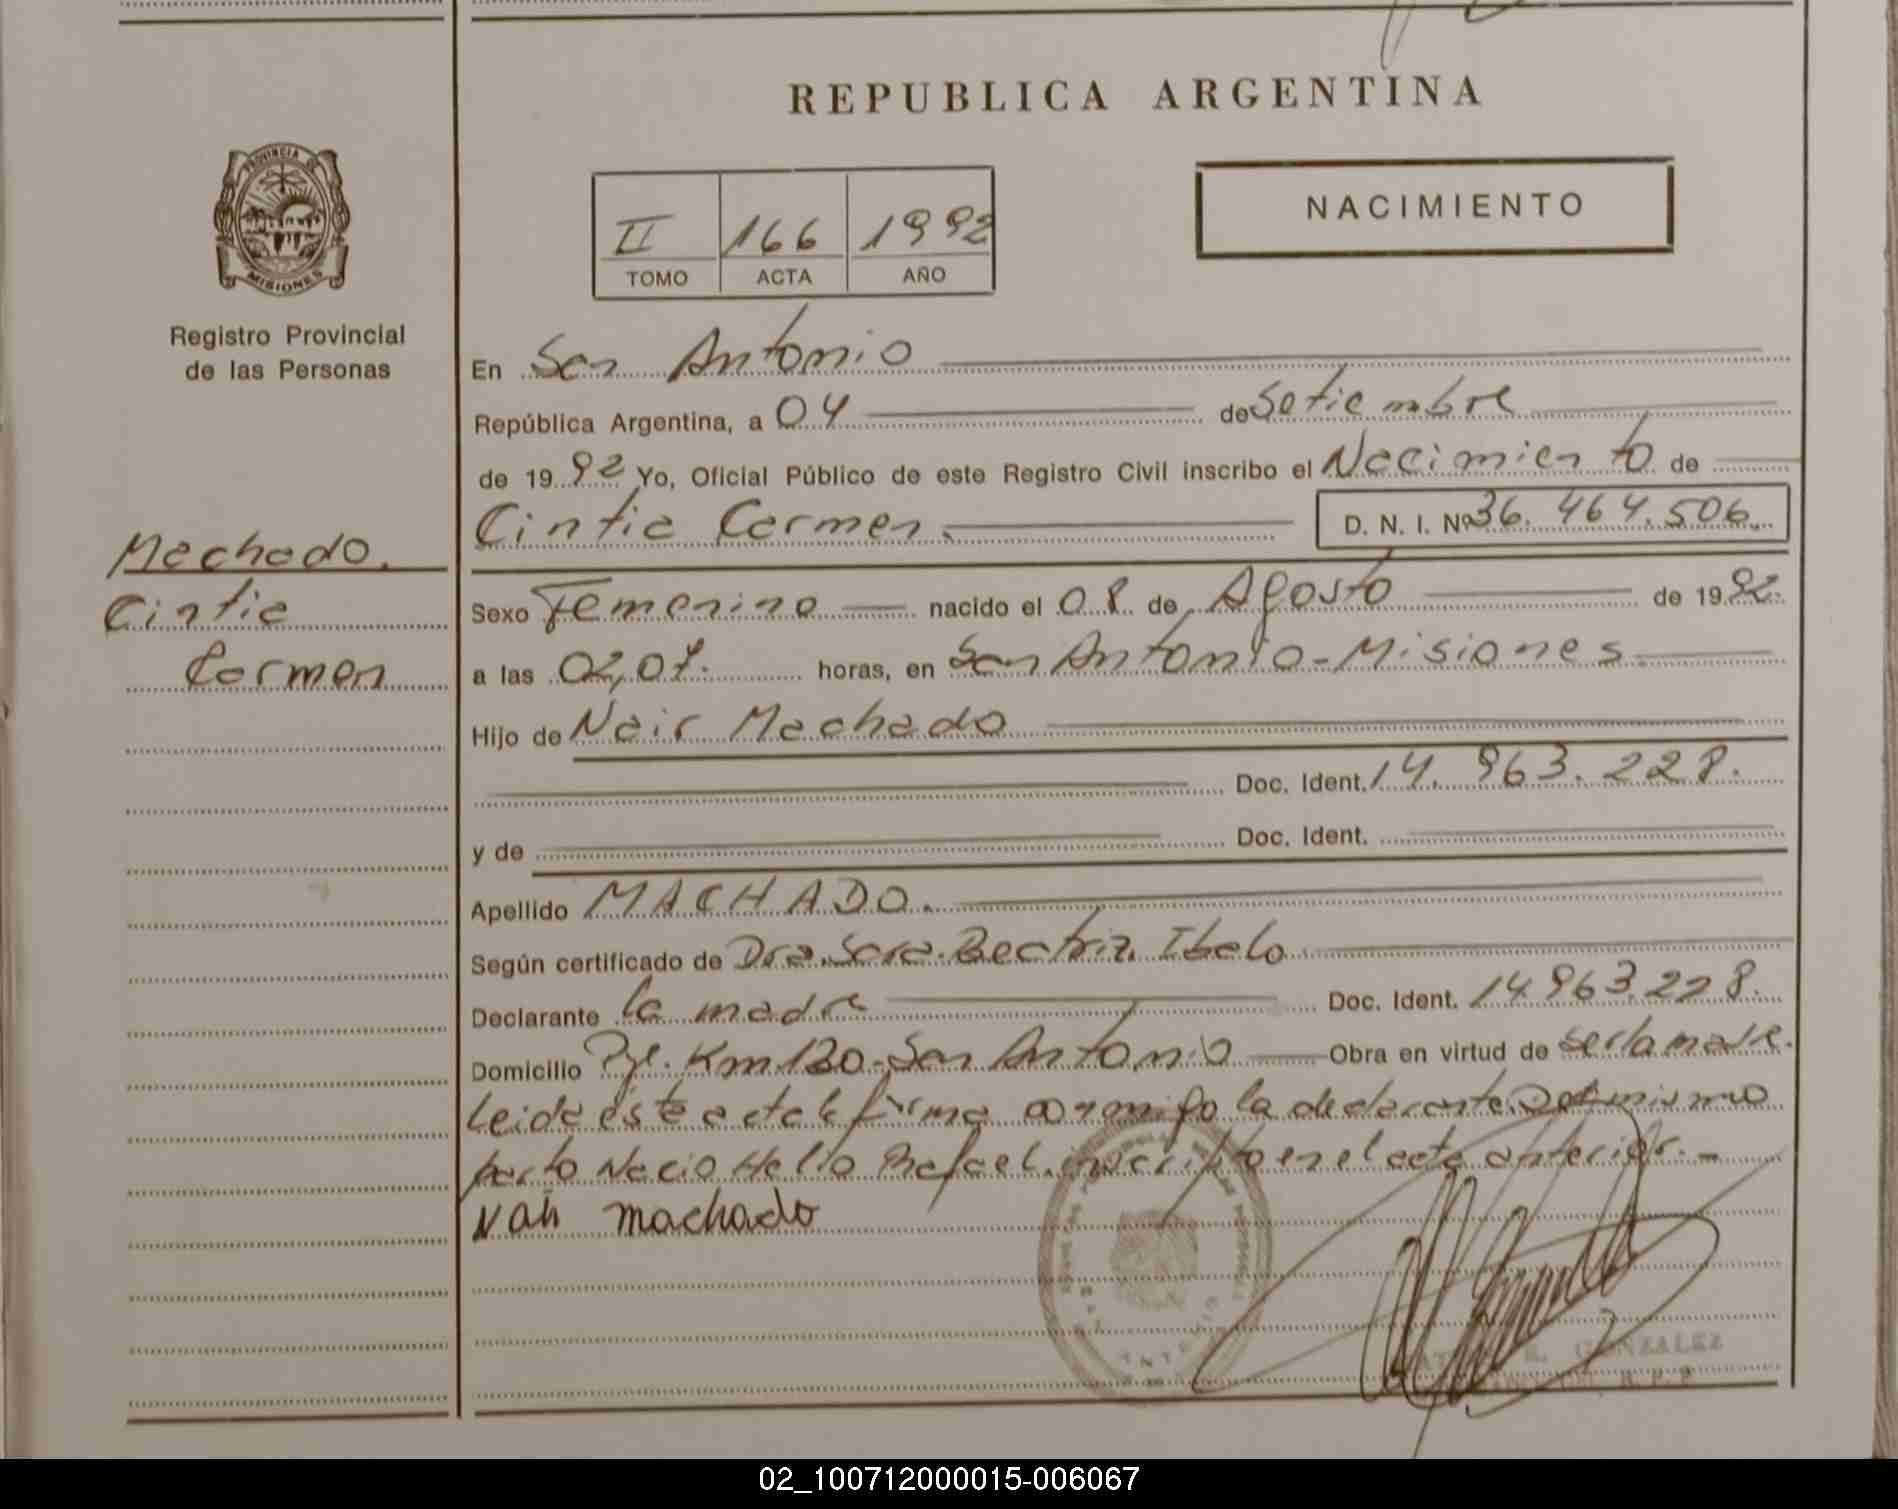 REPUBLICA ARGENTINA
PROVINCIA DE
MISIONES
Registro Provincial
de las Personas
II 166 1992
TOMO ACTA AÑO
NACIMIENTO
En San Antonio
República Argentina, a 04 de Setiembre
de 1992 Yo, Oficial Público de este Registro Civil inscribo el Nacimiento de
Cintia Carmen. D. N. I. Nº 36.464.506.
Machado.
Cintia
Carmen
Sexo Femenino nacido el 08 de Agosto de 1992.
a las 02,07. horas, en San Antonio-Misiones.
Hijo de Nair Machado
Doc. Ident. 14.963.228.
y de Doc. Ident.
Apellido MACHADO.
Según certificado de Dra. Sara Beatriz Ibalo
Declarante la madre Doc. Ident. 14.963.228.
Domicilio Pje. Km 130-San Antonio Obra en virtud de ser la madre.
Leida este acta la firma conmigo la declarante. Del mismo
parto Nacio Helio Rafael. inscripto en el acta anterior.-
Nair machado
ANTONIO
GONZALEZ
02_100712000015-006067